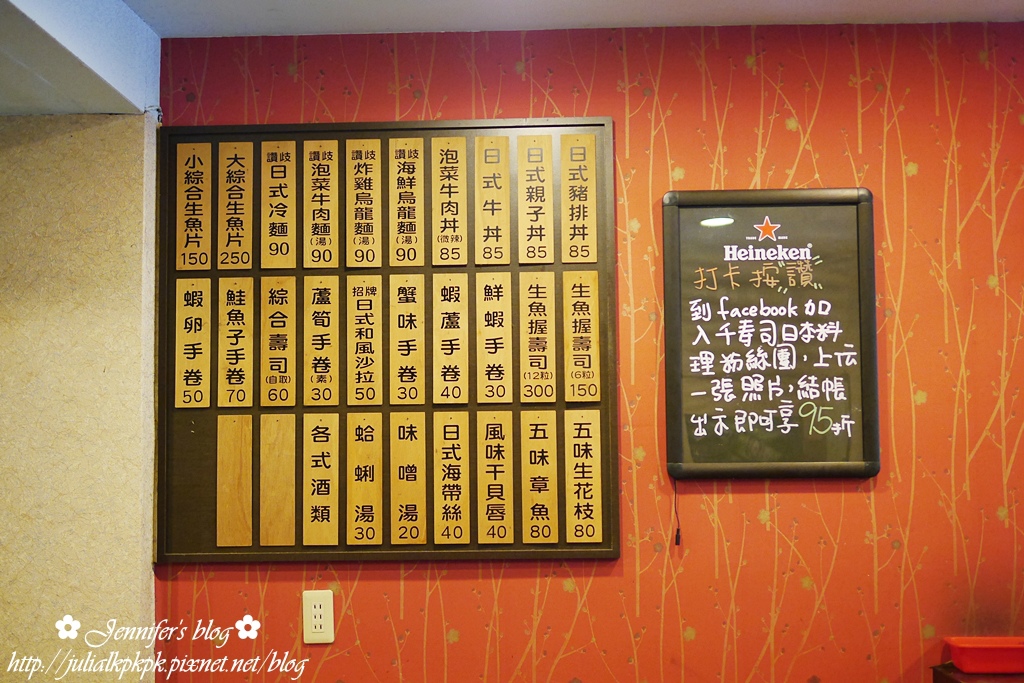 日式豬排丼 85
日式親子丼 85
日式牛丼 85
泡菜牛肉丼(微辣) 85
讚岐海鮮烏龍麵(湯) 90
讚岐炸雞烏龍麵(湯) 90
讚岐泡菜牛肉麵(湯) 90
讚岐日式冷麵 90
大綜合生魚片 250
小綜合生魚片 150
生魚握壽司(6粒) 150
生魚握壽司(12粒) 300
鮮蝦手卷 30
蝦蘆手卷 40
蟹味手卷 30
招牌日式和風沙拉 50
蘆筍手卷(素) 30
綜合壽司(自取) 60
鮭魚子手卷 70
蝦卵手卷 50
五味生花枝 80
五味章魚 80
風味干貝唇 40
日式海帶絲 40
味噌湯 20
蛤蜊湯 30
各式酒類
Heineken
打卡按"讚"
到facebook加
入千壽司日本料
理粉絲團，上傳
一張照片，結帳
出示即可享95折
Jennifer's blog
http://julialkpkpk.pixnet.net/blog